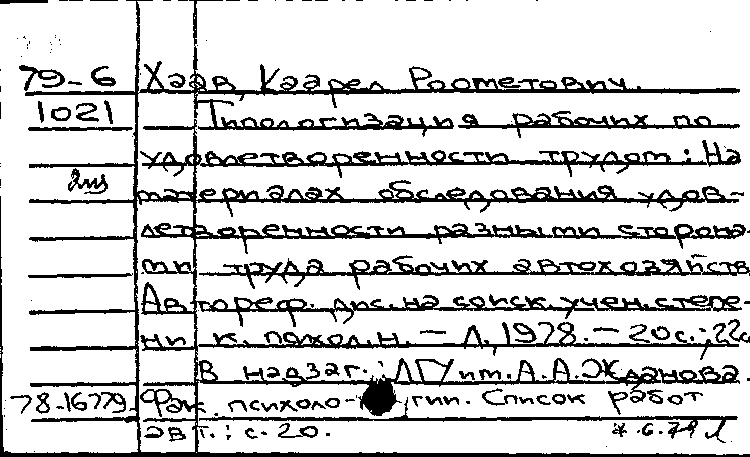 79-6 Хаав, Каарел Роометович.
1021 Типологизация рабочих по
удовлетворенности трудом: На
2из материалах обследования удов-
летворенности разными сторона-
ми труда рабочих автохозяйств
Автореф. дис. на соиск. учен. степе-
ни к. психол. н. — Л., 1978. — 20 с.; 22с
В надзаг.: ЛГУ им. А.А. Жданова.
78-16779 Фак. психоло-гии. Список работ
авт.: с. 20.